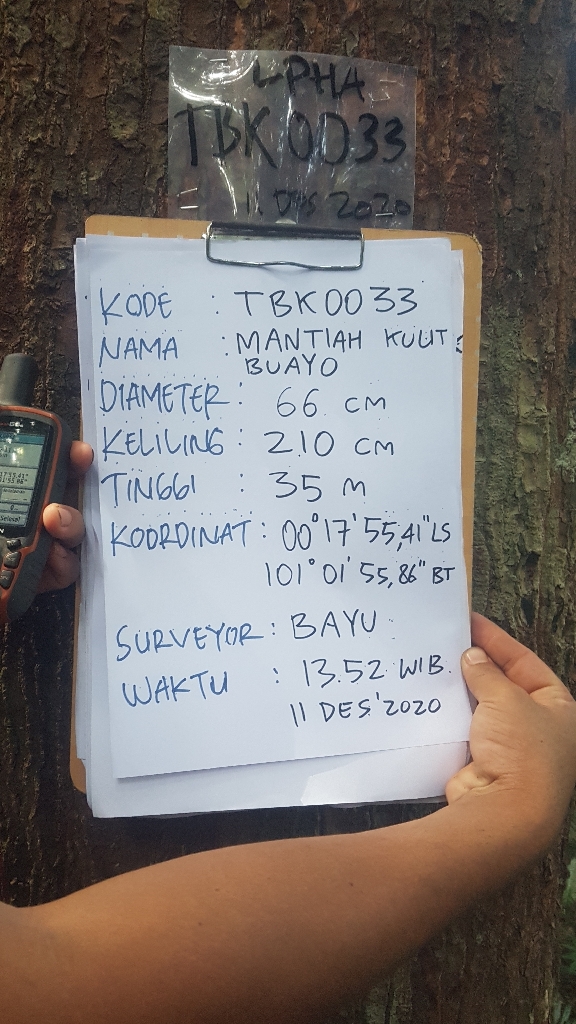 LPHA
TBK0033
11 DES 2020
KODE : TBK0033
NAMA : MANTIAH KULIT
BUAYO
DIAMETER : 66 CM
KELILING : 210 CM
TINGGI : 35 M
KOORDINAT : 00°17'55,41" LS
101°01'55,86" BT
SURVEYOR : BAYU
WAKTU : 13.52 WIB.
11 DES'2020